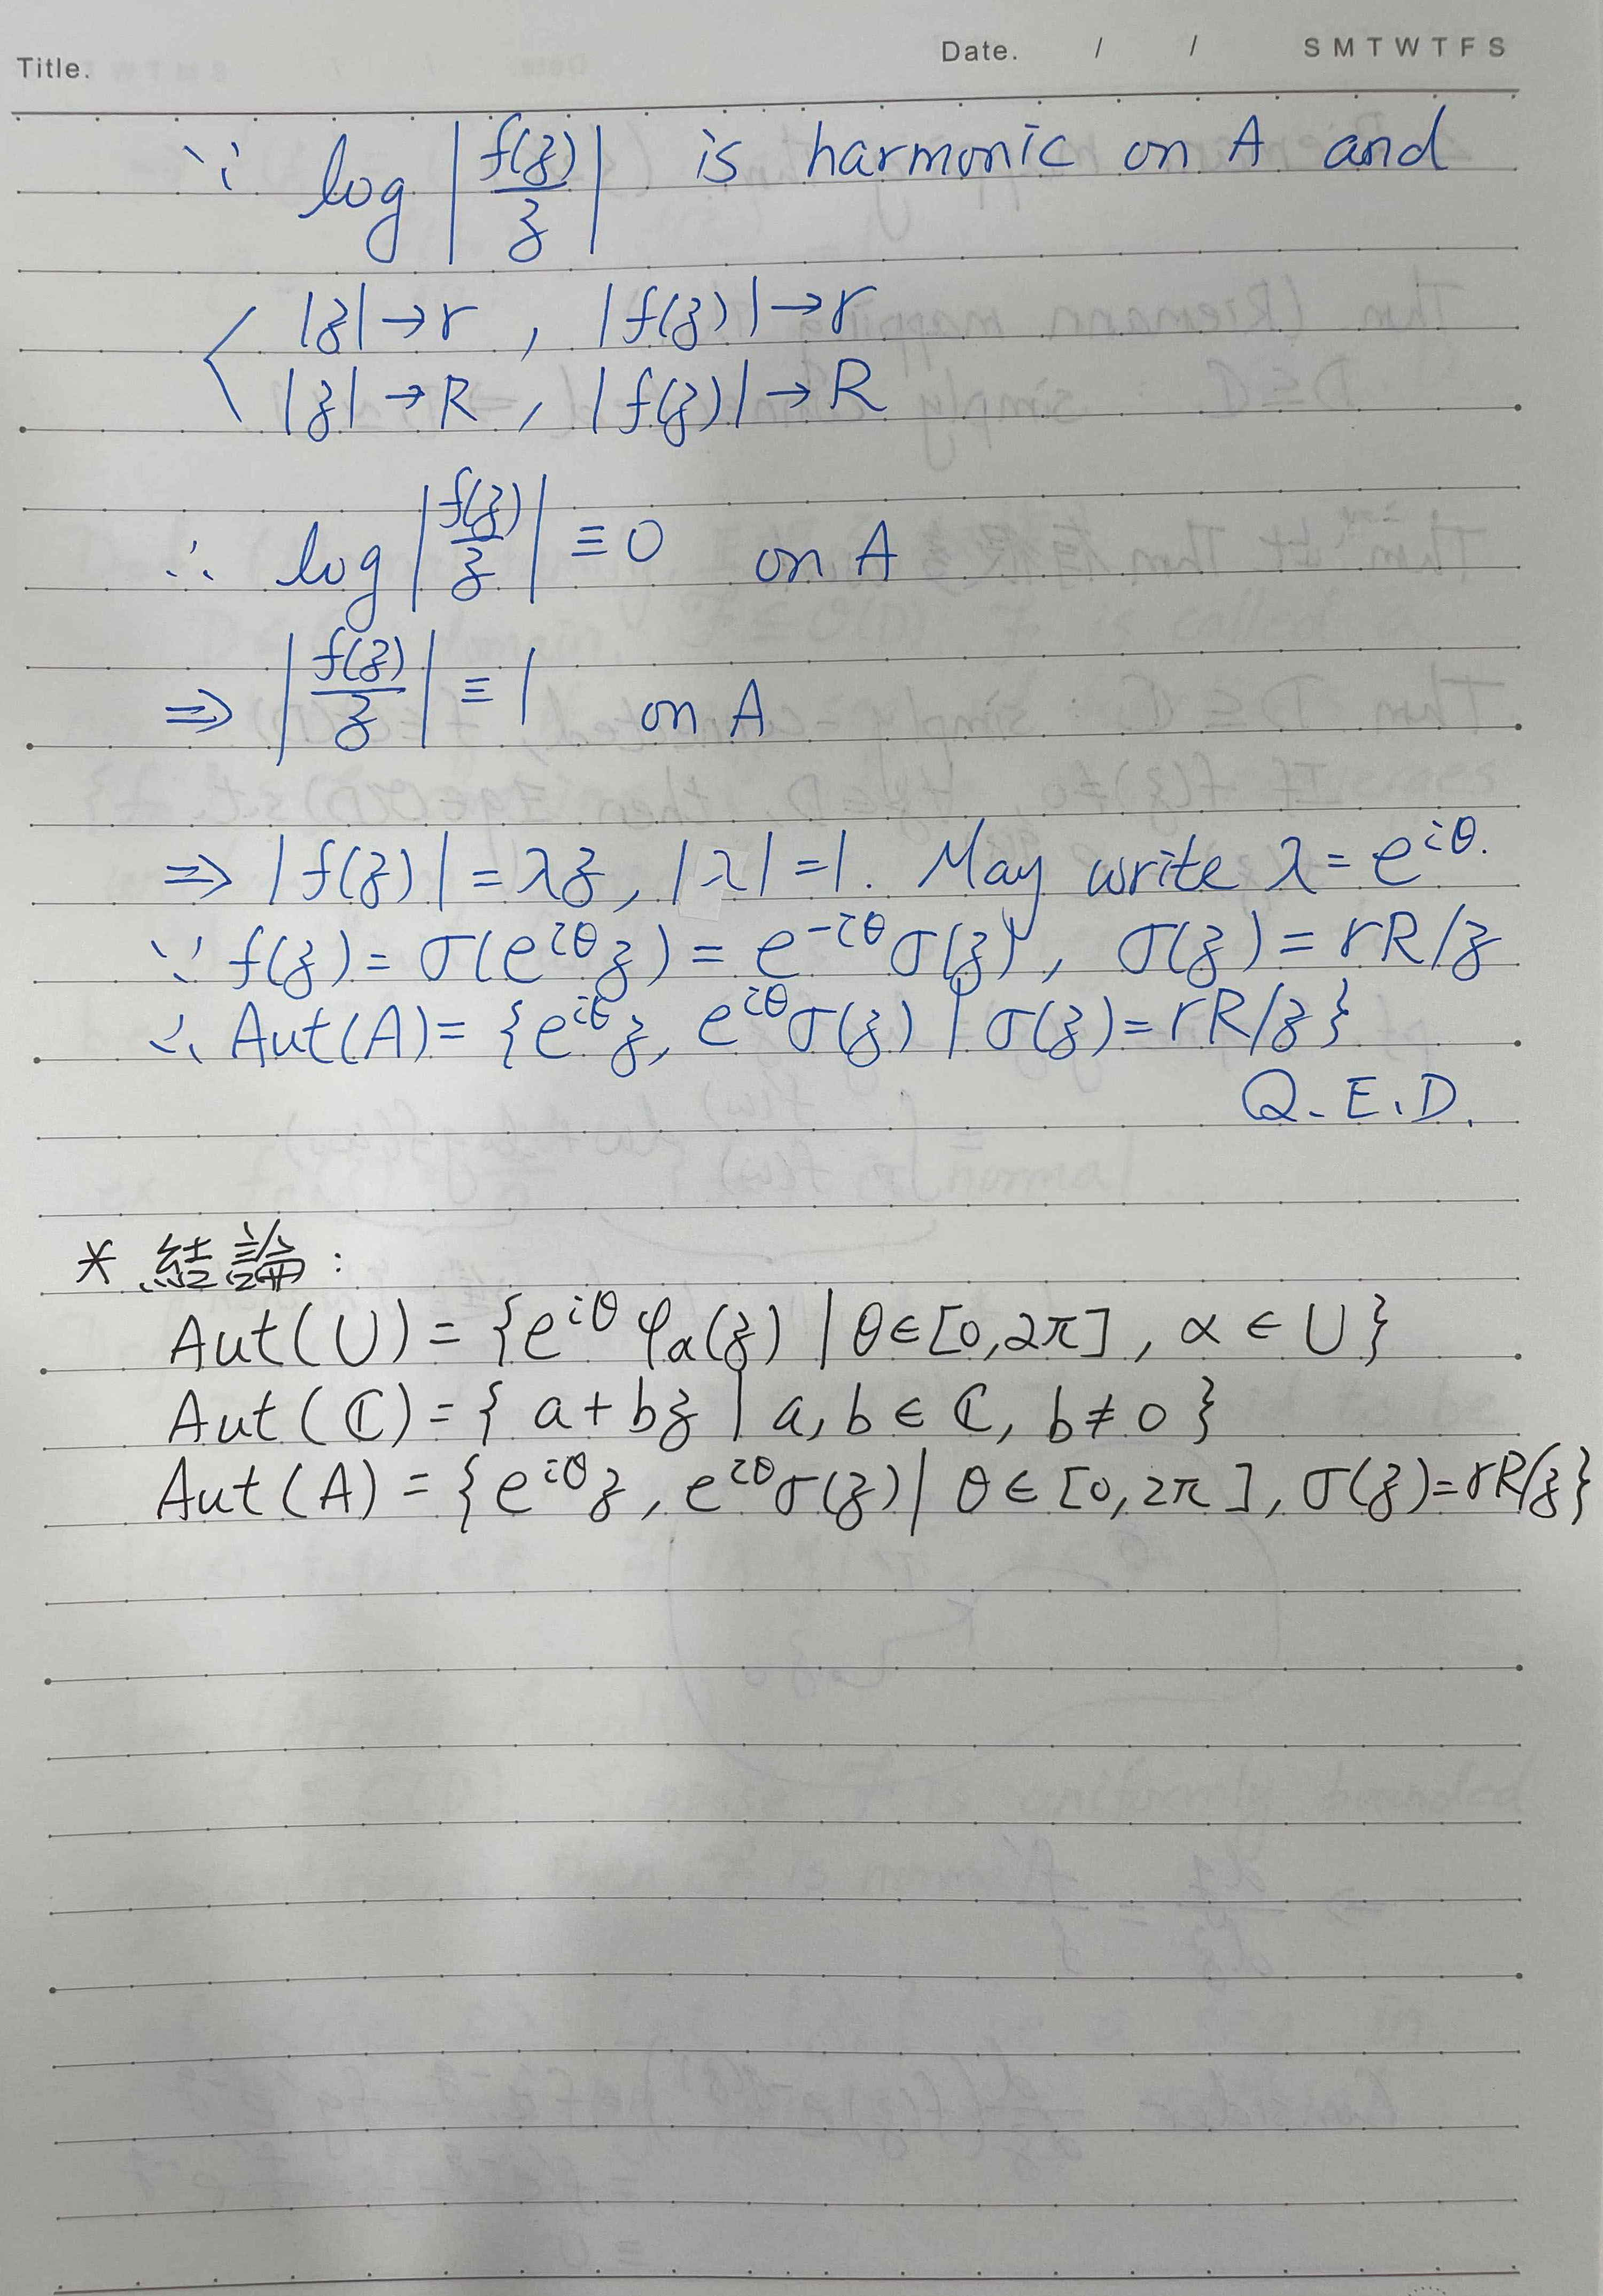 Title.
Date. / / S M T W T F S
∵ log |f(z)/z| is harmonic on A and
|z| → r , |f(z)| → r
|z| → R , |f(z)| → R
∴ log |f(z)/z| ≡ 0 on A
⇒ |f(z)/z| ≡ 1 on A
⇒ |f(z)| = λz, |λ| = 1. May write λ = e^{iθ}.
∵ f(z) = σ(e^{iθ}z) = e^{-iθ}σ(z), σ(z) = rR/z
∴ Aut(A) = {e^{iθ}z, e^{iθ}σ(z) | σ(z) = rR/z}
Q.E.D.
* 結論:
Aut(U) = {e^{iθ} φ_α(z) | θ ∈ [0, 2π], α ∈ U}
Aut(ℂ) = { a + bz | a, b ∈ ℂ, b ≠ 0 }
Aut(A) = {e^{iθ}z, e^{iθ}σ(z) | θ ∈ [0, 2π], σ(z) = rR/z}